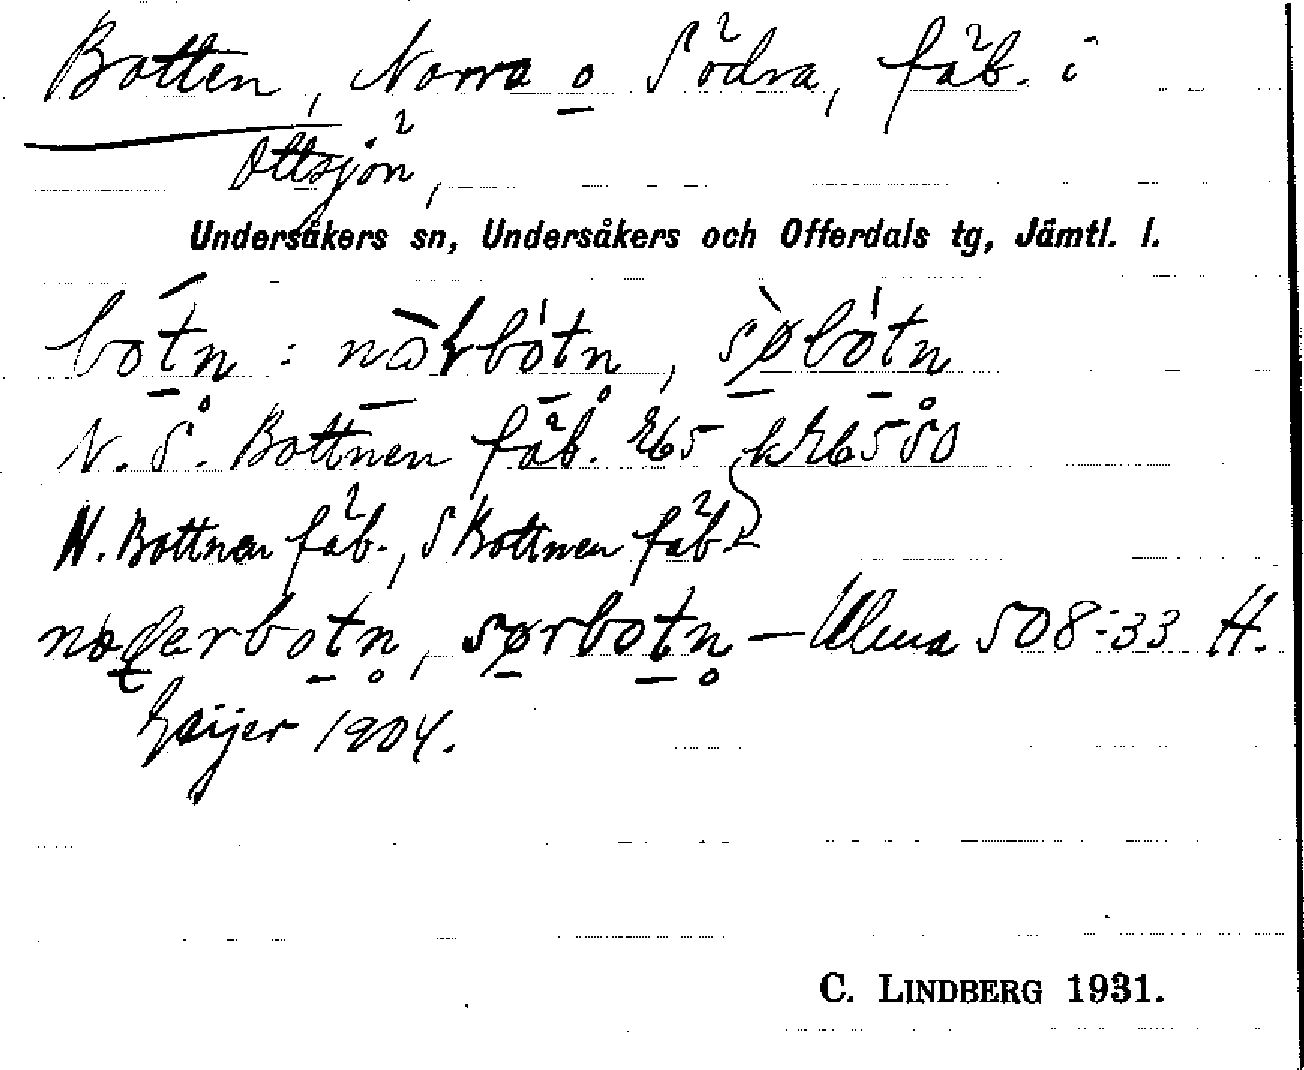 Botten, Norra o Södra, fäb. i
Ottsjön,
Undersåkers sn, Undersåkers och Offerdals tg, Jämtl. l.
botn : nòrbótn, sø̀bótn
N. S. Bottnen fäb. E65 kr E65 SO
N. Bottnen fäb., S Bottnen fäb
norbotn, sørbotn – Ulma 508:33 H.
Geijer 1904.
C. LINDBERG 1931.